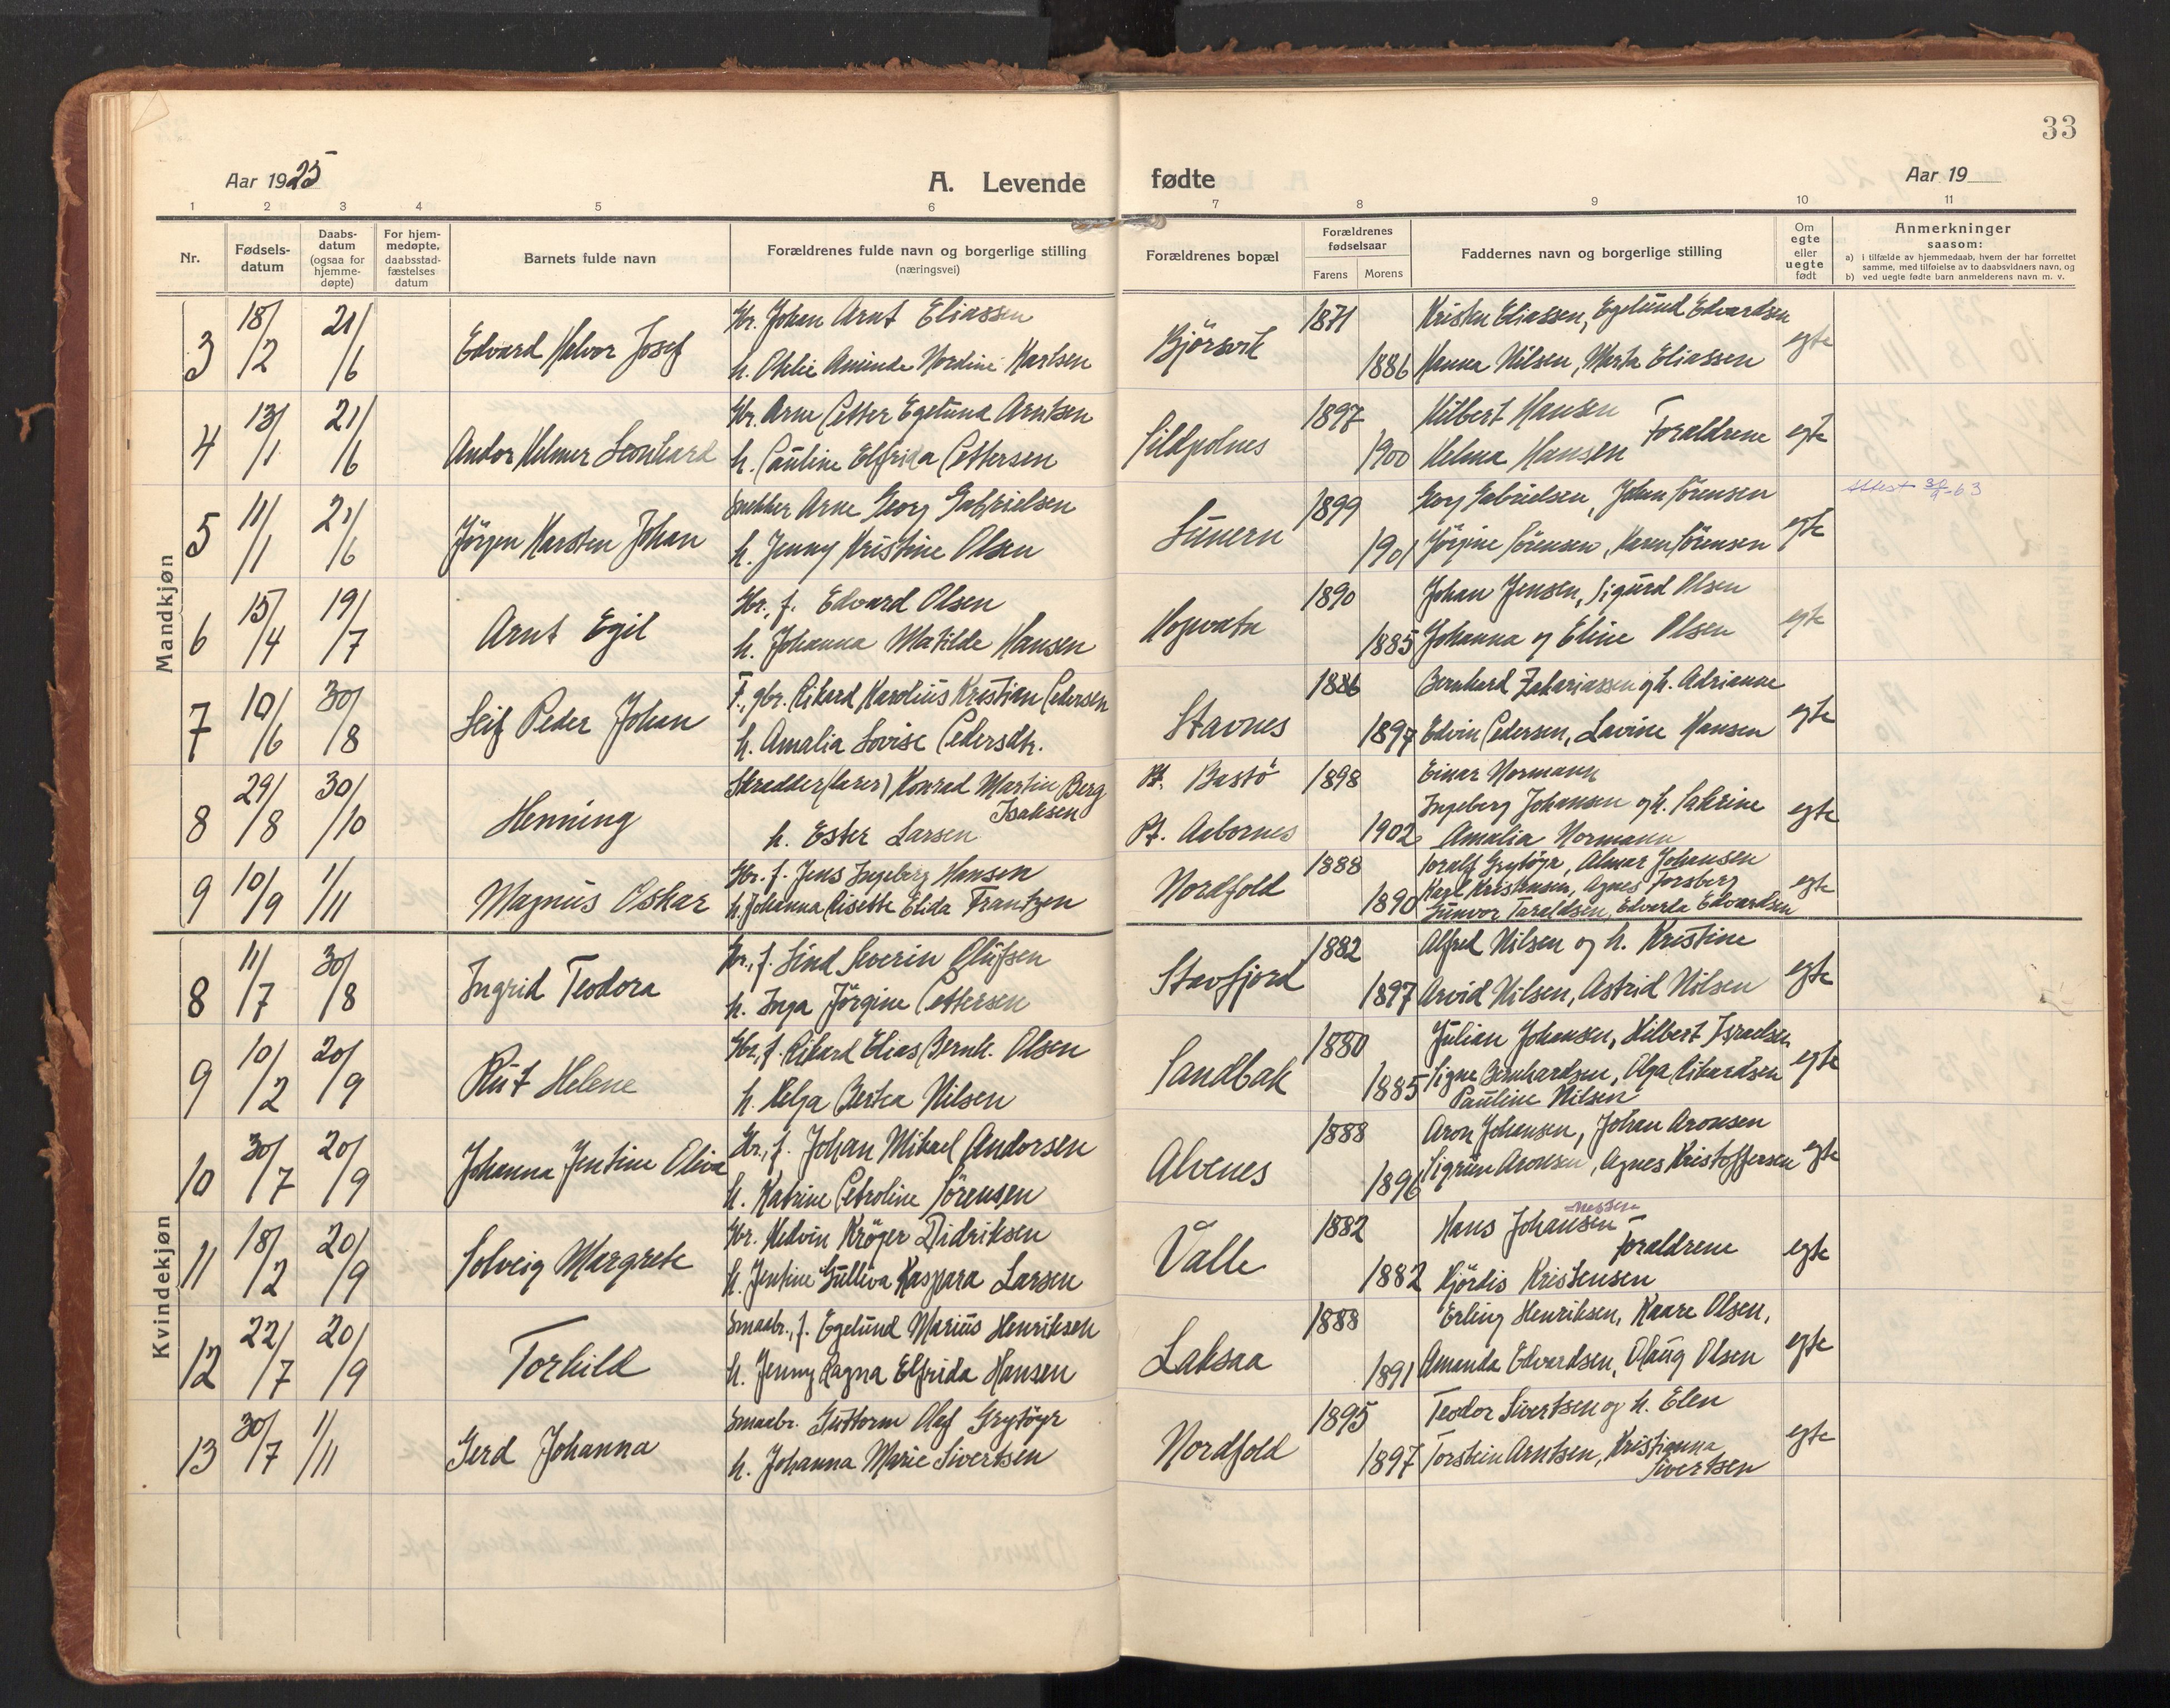 33
Aar 1925
A. Levende fødte
Aar 19
1 2 3 4 5 6 7 8 9 10 11
Nr.
Fødsels-
datum
Daabs-
datum
(ogsaa for
hjemme-
døpte)
For hjem-
medøpte,
daabsstad-
fæstelses
datum
Barnets fulde navn
Forældrenes fulde navn og borgerlige stilling
(næringsvei)
Forældrenes bopæl
Forældrenes
fødselsaar
Farens Morens
Faddernes navn og borgerlige stilling
Om
egte
eller
uegte
født
Anmerkninger
saasom:
a) i tilfælde av hjemmedaab, hvem der har forrettet
samme, med tilføielse av to daabsvidners navn, og
b) ved uegte fødte barn anmelderens navn m. v.
Mandkjøn
3 18/2 21/6 Edvard Halvor Josef
Gbr. Johan Arnt Eliassen
h. Aminda Nordine Karlsen
Bjørsvik 1871 1886
Kristen Eliassen, Egelund Edvardsen
Hanna Nilsen, Marta Eliassen
egte
4 13/1 21/6 Andor Helmer Leonhard
Gbr. Arne Petter Egelund Arntsen
h. Pauline Elfrida Pettersen
Sildpolnes 1897 1900
Hilbert Hansen
Helma Hansen Foraldrene
egte
5 11/1 21/6 Jörgen Karsten Johan
Snekker Arne Georg Gabrielsen
h. Jenny Kristine Olsen
1899 1901
Georg Gabrielsen, Johan Sörensen
Jörgine Sörensen, Karen Sörensen
egte
Attest 30/9-63
6 15/4 19/7 Arnt Egil
Gbr., f. Edvard Olsen
h. Johanna Matilde Hansen
Hopvatn 1890 1885
Johan Jensen, Sigurd Olsen
Johanna og Eline Olsen
egte
7 10/6 30/8 Leif Peder Johan
F., gbr. Rikard Karolius Kristian Pedersen
h. Amalia Lovise Pedersdtr.
Stavnes 1886 1897
Bernhard Zakariassen og h. Adrianne
Edvin Pedersen, Lavine Hansen
egte
8 29/8 30/10 Henning
Skredder (lærer) Konrad Martin Berg
Isaksen
h. Ester Larsen
Pt. Bastö
Pt. Aabornes
1898 1902
Einar Normann
Ingeberg Johansen og h. Katrine
Amalia Normann
egte
9 10/9 1/11 Magnus Oskar
Gbr. f. Jens Ingeberg Hansen
h. Johanna Lisette Elida Frantzen
Nordfold 1888 1890
Toralf Grytöyr, Almar Johansen
Karl Kristensen, Agnes Forsberg
Gunvor Taraldsen, Edvarda Edvardsen
egte
Kvindekjøn
8 11/7 30/8 Ingrid Teodora
Gbr., f. Lind Severin Olufsen
h. Inga Jörgine Pettersen
Stavfjord 1882 1897
Alfred Nilsen og h. Kristine
Arvid Nilsen, Astrid Nilsen
egte
9 10/2 20/9 Rut Helene
Gbr., f. Rikard Elias Bernh. Olsen
h. Helga Bertea Nilsen
Sandbak 1880 1885
Julian Johansen, Hilbert Israelsen
Signe Bernhardsen, Olga Rikardsen
Pauline Nilsen
egte
10 30/7 20/9 Johanna Jentine Oliva
Gbr., f. Johan Mikael Andorsen
h. Katrine Petroline Sörensen
Alvenes 1888 1896
Aron Johansen, Johan Aronsen
Sigrun Aronsen, Agnes Kristoffersen
egte
11 18/2 20/9 Solveig Margrete
Gbr. Hedvin Kröger Didriksen
h. Jentine Gulleva Kaspara Larsen
Valle 1882 1882
Hans Johansen
Foraldrene
Hjördis Kristensen
egte
12 22/7 20/9 Torhild
Smaabr., f. Egelund Marius Henriksen
h. Jenny Ragna Elfrida Hansen
Laksaa 1888 1891
Erling Henriksen, Kaare Olsen,
Amanda Edvardsen, Olaug Olsen
egte
13 30/7 1/11 Gerd Johanna
Smaabr. Guttorm Olaf Grytöyr
h. Johanna Marie Sivertsen
Nordfold 1895 1897
Teodor Sivertsen og h. Elen
Torstein Arntsen, Kristianna
Sivertsen
egte